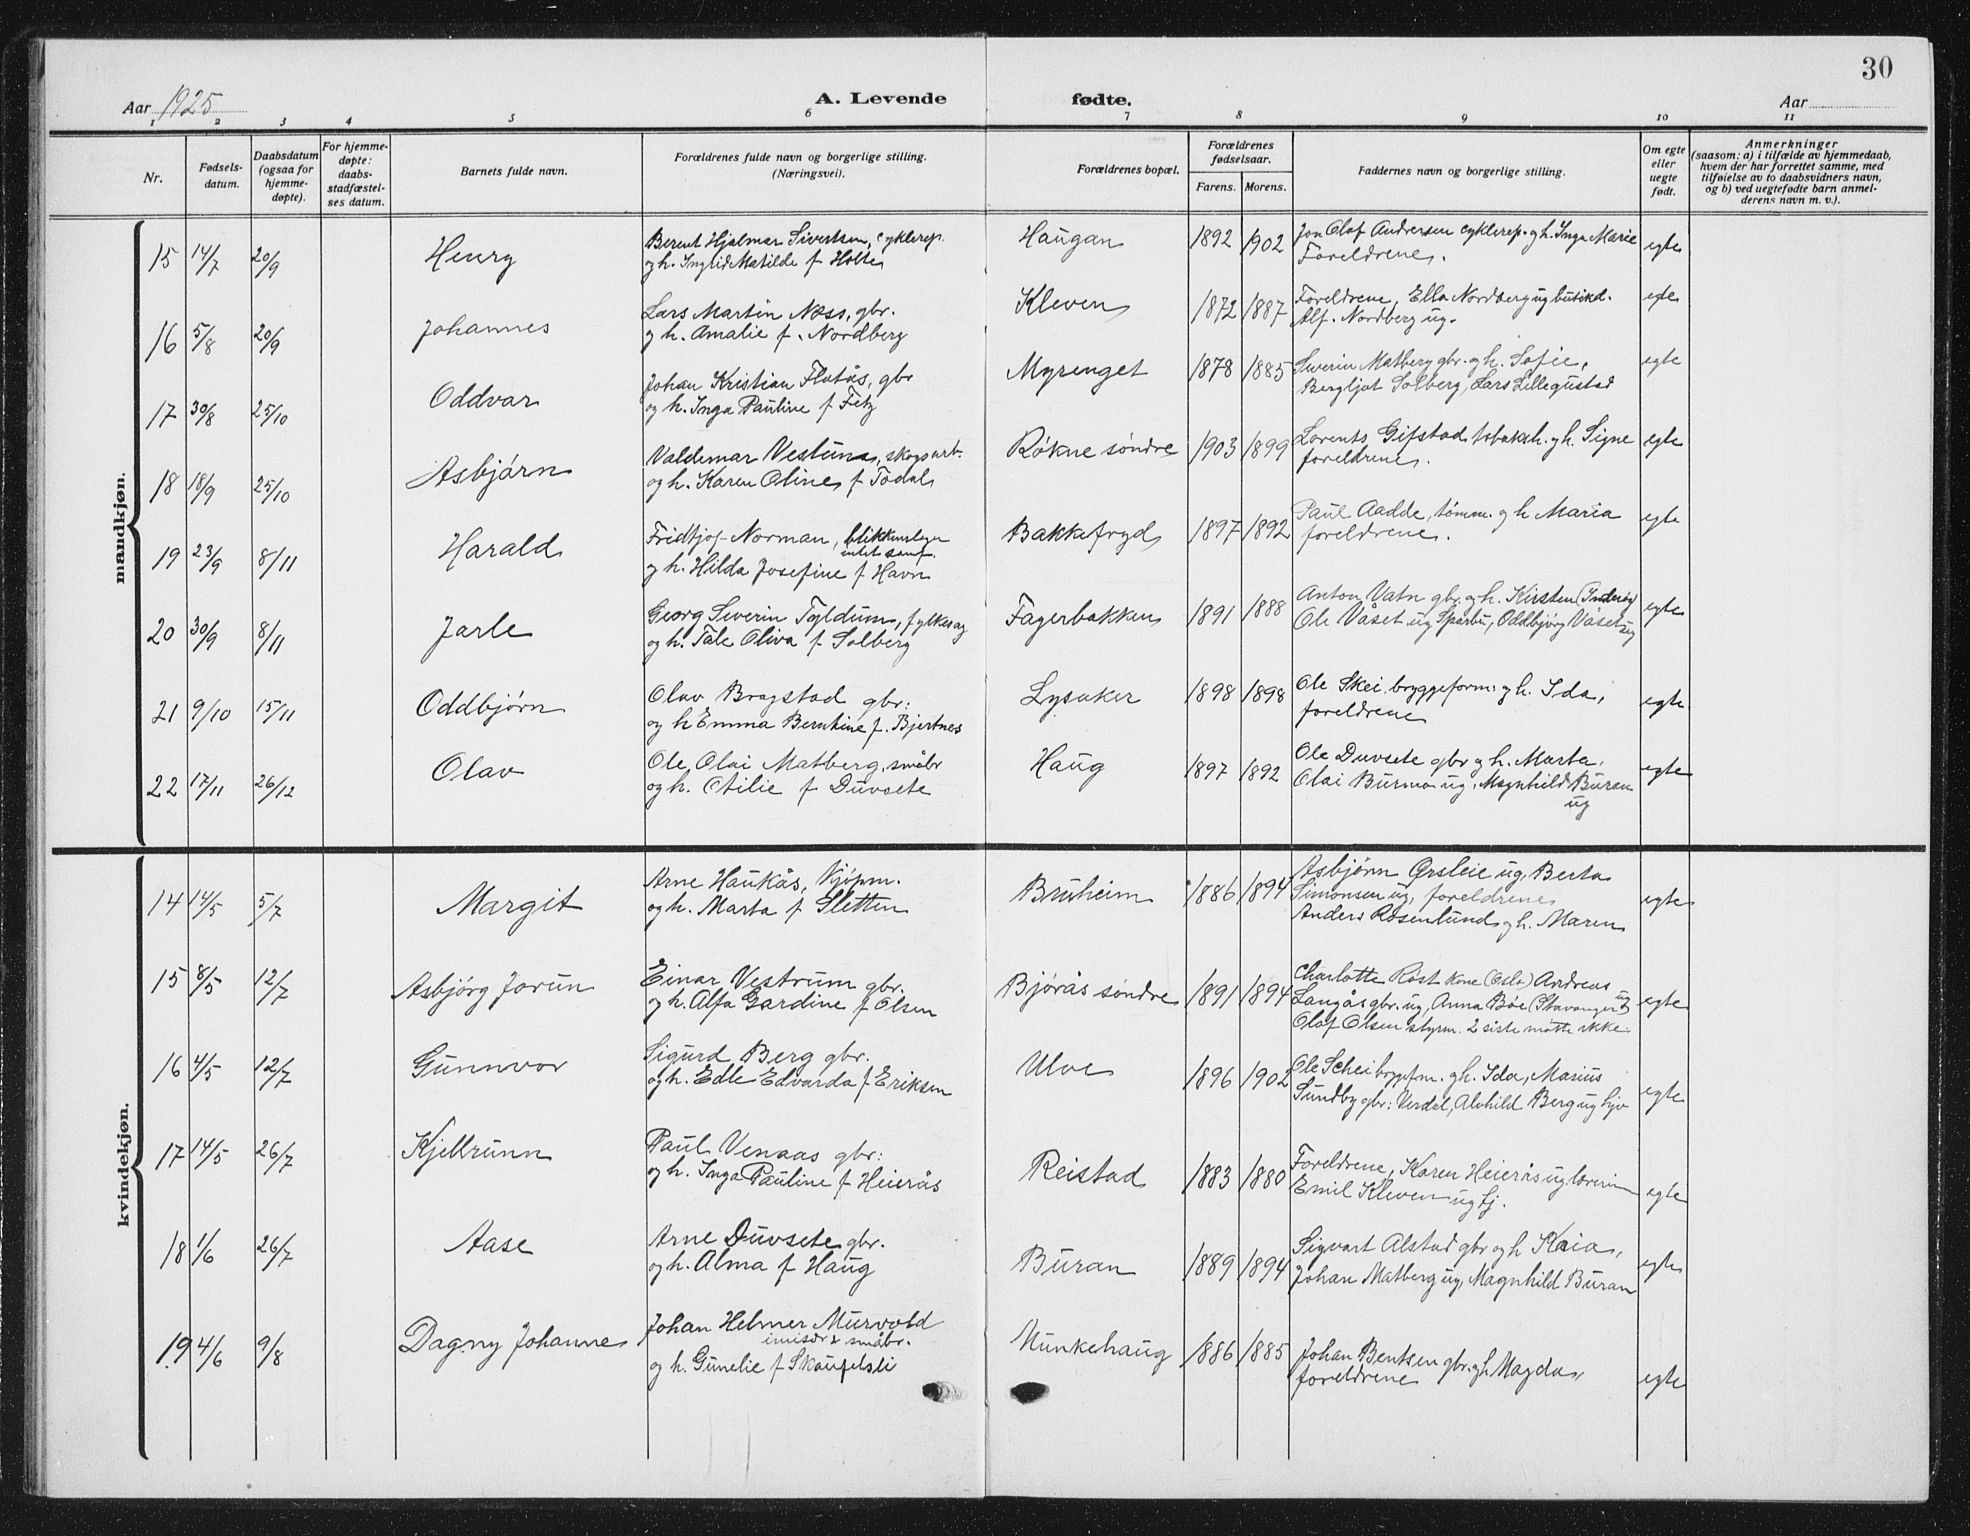 30
Aar 1925
A. Levende fødte.
Aar
1 2 3 4 5 6 7 8 9 10 11
Nr.
Fødsels-
datum.
Daabsdatum
(ogsaa for
hjemme-
døpte).
For hjemme-
døpte:
daabs-
stadfæstel-
ses datum.
Barnets fulde navn.
Forældrenes fulde navn og borgerlige stilling.
(Næringsvei).
Forældrenes bopæl.
Forældrenes
fødselsaar.
Farens. Morens.
Faddernes navn og borgerlige stilling.
Om egte
eller
uegte
født.
Anmerkninger
(saasom: a) i tilfælde av hjemmedaab,
hvem der har forrettet samme, med
tilføielse av to daabsvidners navn,
og b) ved uegtefødte barn anmel-
derens navn m. v.).
mandkjøn.
15 14/7 20/9 Henry
Berent Hjalmar Sivertsen, cyklerep.
og h. Ingrid Matilde f Holte
Haugan 1892 1902
Jon Olaf Andersen cyklerep. og h. Inga Marie
Foreldrene.
egte
16 5/8 20/9 Johannes
Lars Martin Næss, gbr.
og h. Amalie f. Nordberg
Kleven 1872 1887
Foreldrene, Ella Nordberg ug butikd.
Alf. Nordberg ug.
egte
17 30/8 25/10 Oddvar
Johan Kristian Flotås, gbr
og h. Inga Pauline f
Myrenget 1878 1885
Severin Matberg gbr. og h. Sofie,
Bergljot Solberg, Lars Lillegustad
egte
18 18/9 25/10 Asbjørn
Valdemar Vestum, skogsarb.
og h. Karen Oline f Todal
Røkne søndre 1903 1899
Lorents Gifstad tobakh. og h. Signe
foreldrene.
egte
19 23/9 8/11 Harald
Fridtjof Norman, blikkenslager
og h. Hilda Josefine f Havn
Bakkefryd 1897 1892
Paul Aadde, tømm. og h Maria
foreldrene.
egte
20 30/9 8/11 Jarle
Georg Severin Tyldum, fylkesag
og h. Tale Oliva f Solberg
Fagerbakken 1891 1888
Anton Vatn gbr og h. Kirsten (Inderøy)
Ole Våset ug Sparbu, Oddbjørg Våset ug
egte
21 9/10 15/11 Oddbjørn
Olav Bragstad gbr:
og h Emma Berntine f. Bjertnes
Lysaker 1898 1898
Ole Skei bryggeform. og h. Ida,
foreldrene
egte
22 17/11 26/12 Olav
Ole Olai Matberg, småbr
og h. Otilie f Duvsete
Haug 1897 1892
Ole Duvsete gbr og h. Marta,
Olai Burmo ug, Magnhild Buran
ug
egte
kvindekjøn.
14 14/5 5/7 Margit
Arne Haukås, Kjøpm.
og h. Marta f Sletten
Bruheim 1886 1894
Asbjørn Ørsleie ug, Berta
Simonsen ug, foreldrene
Anders Rosenlund og h. Maren
egte
15 8/5 12/7 Asbjørg Jorun
Einar Vestrum gbr.
og h. Alfa Gardine f Olsen
Bjørås søndre 1891 1894
Charlotte Røst kone (Oslo) Andreas
Langås gbr. ug, Anna Bøe (Stavanger) ug
Olaf Olsen styrm. 2 siste møtte ikke
egte
16 4/5 12/7 Gunnvor
Sigurd Berg gbr.
og h. Edle Edvarda f Eriksen
Ulve 1896 1902
Ole Schei bryggefm. og h. Ida, Marius
Sundby gbr: Verdal, Alvhild Berg ug hjv
egte
17 14/5 26/7 Kjellrunn
Paul Venaas gbr:
og h. Inga Pauline f Heierås
Reistad 1883 1880
Foreldrene, Karen Heierås ug lærerin
Emil Kleven ug tj.
egte
18 1/6 26/7 Aase
Arne Duvsete gbr.
og h. Alma f Haug
Buran 1889 1894
Sigvart Alstad gbr og h Kaia,
Johan Matberg ug, Magnhild Buran
egte
19 4/6 9/8 Dagny Johanne
Johan Helmer Murvold
småbr.
og h. Gunelie f
Munkehaug 1886 1885
Johan Bentsen gbr. og h. Magda,
foreldrene
egte